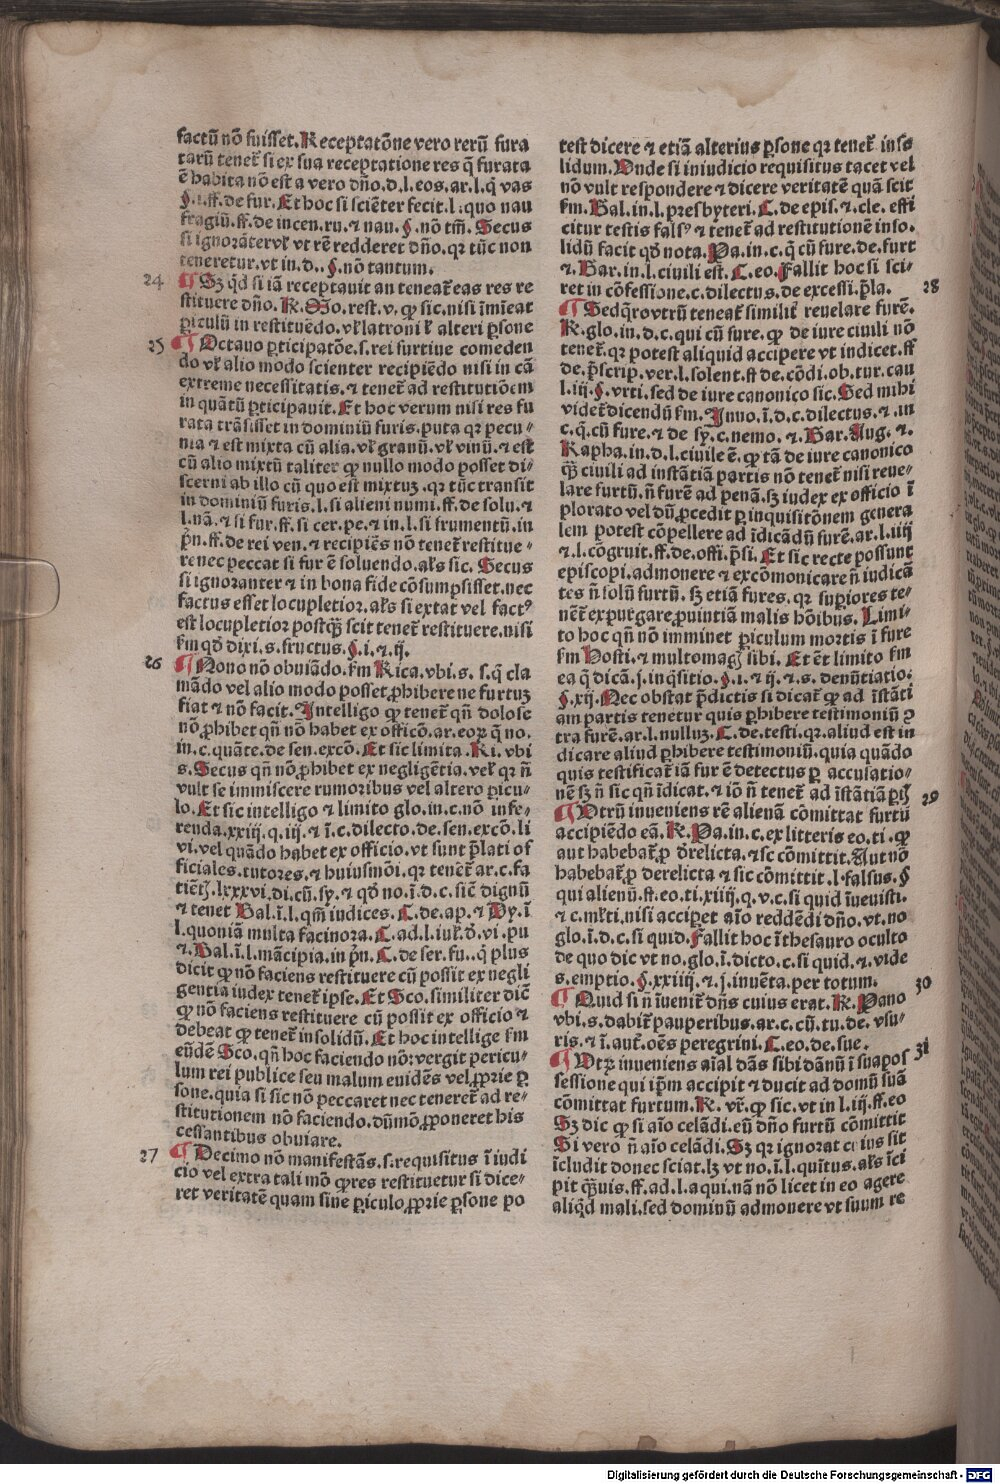 factū nō fuisset. Receptatōne vero rerū fura
tarū tenet̄ si ex sua receptatione res q̄ furata
ē habita nō est a vero dño. d. l. eos. ar. l. q̄ vas
§. i. ff. de fur. Et hoc si sciēter fecit. l. quo nau
fragiū. ff. de incen. ru. ⁊ nau. §. nō tm̄. Secus
si ignorāter vl̄ vt rē redderet dño. qr tūc non
teneretur. vt in. d.. §. nō tantum.
24 ¶ Sꝫ qd̄ si iā receptauit an teneat̄ eas res re
stituere dño. R. Sco. rest. v. ꝙ sic. nisi īmieat
ꝑiculū in restituēdo. vl̄ latroni l̄ alteri ꝑsone
25 ¶ Octauo ꝑticipatōe. s. rei furtiue comeden
do vl̄ alio modo scienter recipiēdo nisi in cā
extreme necessitatis. ⁊ tenet̄ ad restitutiōem
in quātū ꝑticipauit. Et hoc verum nisi res fu
rata trāsisset in dominiū furis. puta qr pecu-
nia ⁊ est mixta cū alia. vl̄ granū. vl̄ vinū. ⁊ est
cū alio mixtū taliter ꝙ nullo modo posset di-
scerni ab illo cū quo est mixtuꝫ. qr tūc transit
in dominiū furis. l. si alieni numi. ff. de solu. ⁊
l. nā. ⁊ si fur. ff. si cer. pe. ⁊ in. l. si frumentū. in
pn̄. ff. de rei ven. ⁊ recipiēs nō tenet̄ restitue-
re nec peccat si fur ē soluendo. al̄s sic. Secus
si ignoranter ⁊ in bona fide cōsumpsisset. nec
factus esset locupletior. al̄s si extat vel factꝰ
est locupletior postqꝫ scit tenet̄ restituere. nisi
fm qd̄ dixi. s. fructus. §. i. ⁊ ij.
26 ¶ Nono nō obuiādo. fm Rica. vbi. s. s. q̄ cla
mādo vel alio modo posset ꝓhibere ne furtuꝫ
fiat ⁊ nō facit. Intelligo ꝙ tenet̄ qn̄ dolose
nō ꝓhibet qn̄ nō habet ex officō. ar. eoꝝ q̄ no.
in. c. quāte. de sen. excō. Et sic limita. Ri. vbi
s. Secus qn̄ nō ꝓhibet ex negligētia. vel qr ñ
vult se immiscere rumoribus vel altero ꝑicu-
lo. Et sic intelligo ⁊ limito glo. in. c. nō infe-
renda. xxiij. q. iij. ⁊ ī. c. dilecto. de. sen. excō. li
vi. vel quādo habet ex officio. vt sunt p̄lati of
ficiales. tutores. ⁊ huiusmōi. qr tenēt̄ ar. c. fa
tiētꝭ. lxxxvi. di. cū. sy. ⁊ qd̄ no. ī. d. c. sicē dignū
⁊ tenet Bal. ī. l. qm̄ iudices. C. de. ap. ⁊ Dy. ī
l. quoniā multa facinora. C. ad. l. iul. d̄. vi. pu
⁊. Bal. ī. l. mācipia. in pn̄. C. de ser. fu.. q̄ plus
dicit ꝙ nō faciens restituere cū possit ex negli
gentia iudex tenet̄ ipse. Et Sco. similiter dic̄
ꝙ nō faciens restituere cū possit ex officio ⁊
debeat ꝙ tenet̄ in solidū. Et hoc intellige fm
eūdē Sco. qn̄ hoc faciendo nō: vergit pericu-
lum rei publice seu malum euidēs vel ꝓprie ꝑ
sone. quia si sic nō peccaret nec teneret̄ ad re-
stitutionem nō faciendo. dūmō ꝓponeret his
cessantibus obuiare.
27 ¶ Decimo nō manifestās. s. requisitus ī iudi
cio vel extra tali mō ꝙ res restituetur si dice-
ret veritatē quam sine ꝑiculo ꝓprie ꝑsone po
test dicere ⁊ etiā alterius ꝑsone qr tenet̄ inso
lidum. Unde si in iudicio requisitus tacet vel
nō vult respondere ⁊ dicere veritatē quā scit
fm. Bal. in. l. presbyteri. C. de epis. ⁊. cle. effi
citur testis falsꝰ ⁊ tenet̄ ad restitutionē inso.
lidū facit qd̄ nota. Pa. in. c. q̄ cū fure. de. furt
⁊. Bar. in. l. ciuili est. C. eo. Fallit hoc si sci-
ret in cōfessione. c. dilectus. de excessi. p̄la.
28 ¶ Sed qro vtrū teneat̄ similit̄ reuelare furē.
R. glo. in. d. c. qui cū fure. ꝙ de iure ciuili nō
tenet̄. qr potest aliquid accipere vt indicet. ff
de. p̄scrip. ver. l. solent. ff de. cōdi. ob. tur. cau
l. iij. §. vrti. sed de iure canonico sic. Sed mihi
videt̄ dicendū fm. Inno. ī. d. c. dilectus. ⁊. in
c. q̄. cū fure. ⁊ de sy. c. nemo. ⁊. Bar. Aug. ⁊.
Rapha. in. d. l. ciuile ē. ꝙ tā de iure canonico
qꝫ ciuili ad instātiā partis nō tenet̄ nisi reue-
lare furtū. ñ furē ad penā. sꝫ iudex ex officio ī
plorato vel dū ꝓcedit ꝑ inquisitōnem genera
lem potest cōpellere ad īdicādū furē. ar. l. iiij
⁊. l. cōgruit. ff. de. offi. p̄si. Et sic recte possunt
episcopi. admonere ⁊ excōmonicare ñ iudicā
tes ñ solū furtū. sꝫ etiā fures. qr supiores te-
nēt̄ expurgare ꝓuintiā malis hōibus. Limi-
to hoc qn̄ nō imminet ꝑiculum mortis ī fure
fm Hosti. ⁊ multomagꝭ sibi. Et ēt limito fm
ea q̄ dicā. j. in q̄sitio. §. i. ⁊ ij. ⁊. s. denūtiatio:
§. xij. Nec obstat p̄dictis si dicat̄ ꝙ ad īstāti
am partis tenetur quis ꝓhibere testimoniū ꝯ
tra furē. ar. l. nulluꝫ. C. de. testi. qr. aliud est in
dicare aliud ꝓhibere testimoniū. quia quādo
quis testificat̄ iā fur ē detectus ꝑ accusatio-
nē sꝫ ñ sic qn̄ īdicat. ⁊ iō ñ tenet̄ ad īstātiā ꝑtꝭ
29 ¶ Utrū inueniens rē alienā cōmittat furtū
accipiēdo eā. R. Pa. in. c. ex litteris eo. ti. ꝙ
aut habebat̄ ꝓ d̄relicta. ⁊ sc cōmittit. Aut nō
habebat̄ ꝓ derelicta ⁊ sic cōmittit. l. falsus. §
qui alienū. ff. eo. ti. xiiij. q. v. c. si quid īuenisti.
⁊ c. ml̄ti. nisi accipet aīo reddēdi dño. vt. no
glo. ī. d. c. si quid. Fallit hoc ī thesauro oculto
de quo dic vt no. glo. ī. dicto. c. si quid. ⁊. vide
s. emptio. §. xxiiij. ⁊. j. inuēta. per totum.
30 ¶ Quid si ñ īuenit̄ dñs cuius erat. R. Pano
vbi. s. dabit̄ pauperibus. ar. c. cū. tu. de. vsu-
ris. ⁊ ī. aut̄. oēs peregrini. C. eo. de. suc.
31 ¶ Utꝝ inueniens aīal dās sibi dānū ī sua pos
sessione qui ip̄m accipit ⁊ ducit ad domū suā
cōmittat furtum. R. vr̄. ꝙ sic. vt in. l. iij. ff. eo
Sꝫ dic ꝙ si aīo celādi. eū dño furtū cōmittit
Si vero ñ aīo celādi. Sꝫ qr ignorat cuius sit
īcludit donec sciat. lꝫ vt no. ī. l. quītus. al̄s īci
pit qꝫuis. ff. ad. l. aqui. nā nō licet in eo agere
aliqd̄ mali. sed dominū admonere vt suum re
Digitalisierung gefördert durch die Deutsche Forschungsgemeinschaft - DFG